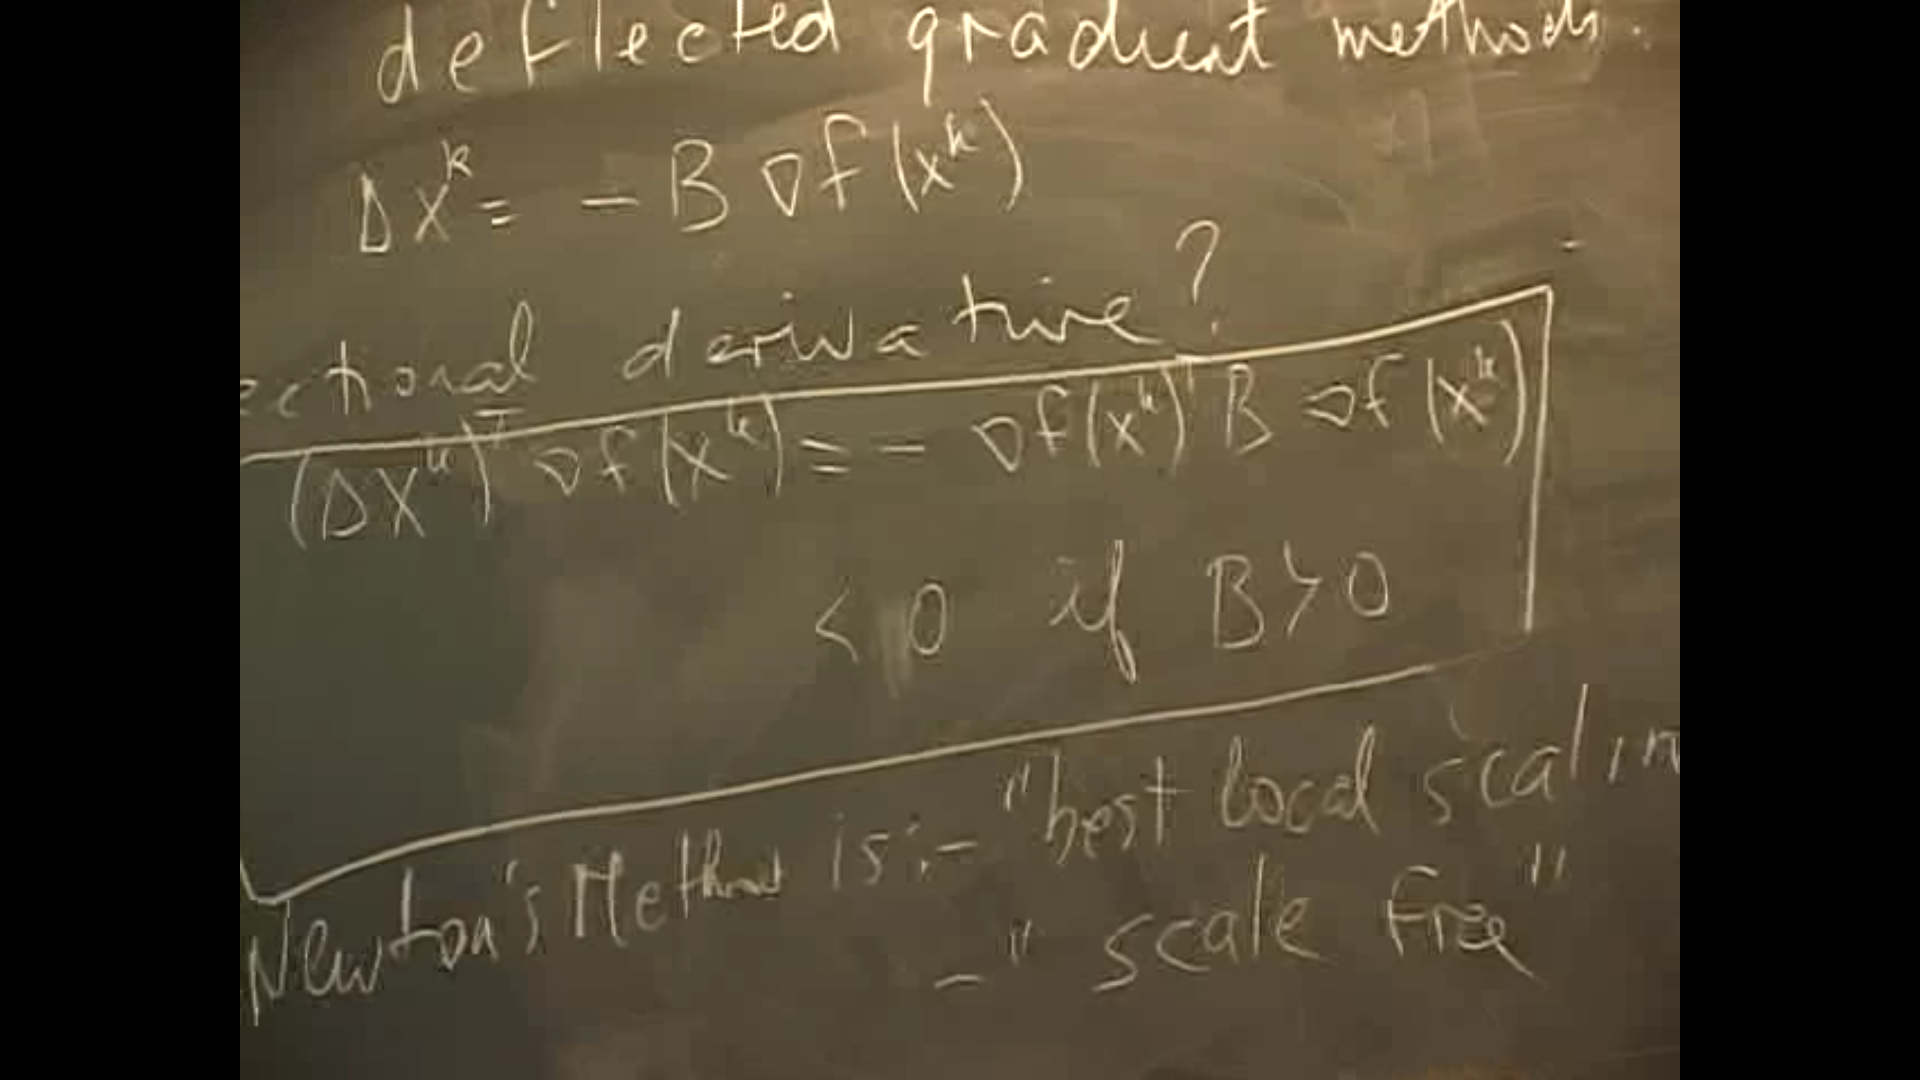 deflected gradient methods.
Δx^k = - B ∇f(x^k)
ectional derivative?
(Δx^k)^T ∇f(x^k) = - ∇f(x^k)^T B ∇f(x^k)
< 0 if B > 0
Newton's Method is: - "best local scalin
- "scale free"